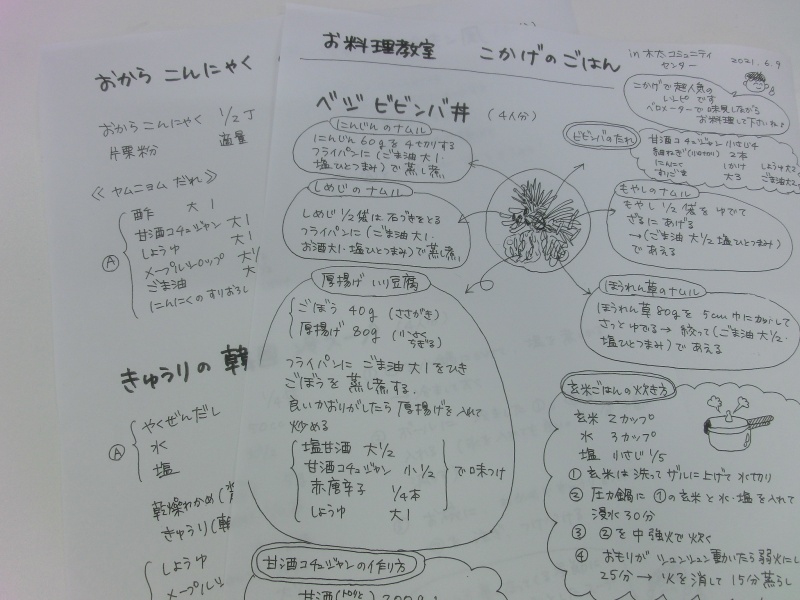 お料理教室 こかげのごはん
in 木太コミュニティ
センター
2021.6.9
こかげで超人気の
レシピです
ベロメーターで味見しながら
お料理して下さいね♪
ベジ ビビンバ丼 (4人分)
にんじんのナムル
にんじん60gを千切りする
フライパンに(ごま油 大1・
塩ひとつまみ)で蒸し煮
しめじのナムル
しめじ 1/2袋は石づきをとる
フライパンに(ごま油 大1・
お酒大1・塩ひとつまみ)で蒸し煮
ビビンバのたれ
甘酒コチュジャン 小さじ4
細ねぎ(小口切り) 2本
にんにく 1かけ しょうゆ大2
すりごま 大3 ごま油大
もやしのナムル
もやし 1/2袋をゆでて
ざるにあげる
→(ごま油 大1/2 塩ひとつまみ)
であえる
ほうれん草のナムル
ほうれん草80gを5cm巾にカットして
さっとゆでる→絞って(ごま油 大1/2・
塩ひとつまみ)であえる
厚揚げ いり豆腐
ごぼう 40g (ささがき)
厚揚げ 80g (小さく
ちぎる)
フライパンに ごま油 大1をひき
ごぼうを蒸し煮する。
良いかおりがしたら厚揚げを入れて
炒める
塩甘酒 大1/2
甘酒コチュジャン 小1/2
赤唐辛子 1/4本
しょうゆ 大1
で味つけ
玄米ごはんの炊き方
玄米 2カップ
水 3カップ
塩 小さじ1/5
① 玄米は洗ってザルに上げて水切り
② 圧力鍋に①の玄米と水・塩を入れて
浸水30分
③ ②を中強火で炊く
④ おもりがシュンシュン動いたら弱火にし
25分→火を消して15分蒸らし
甘酒コチュジャンの作り方
おから こんにゃく
おからこんにゃく 1/2丁
片栗粉 適量
《ヤムニョムだれ》
Ⓐ
酢 大1
甘酒コチュジャン 大1
しょうゆ 大1
メープルシロップ 大1/
ごま油 大
にんにくのすりおろし
きゅうりの
Ⓐ
やくぜんだし
水
塩
乾燥わかめ(
きゅうり(
しょうゆ
メープルシ